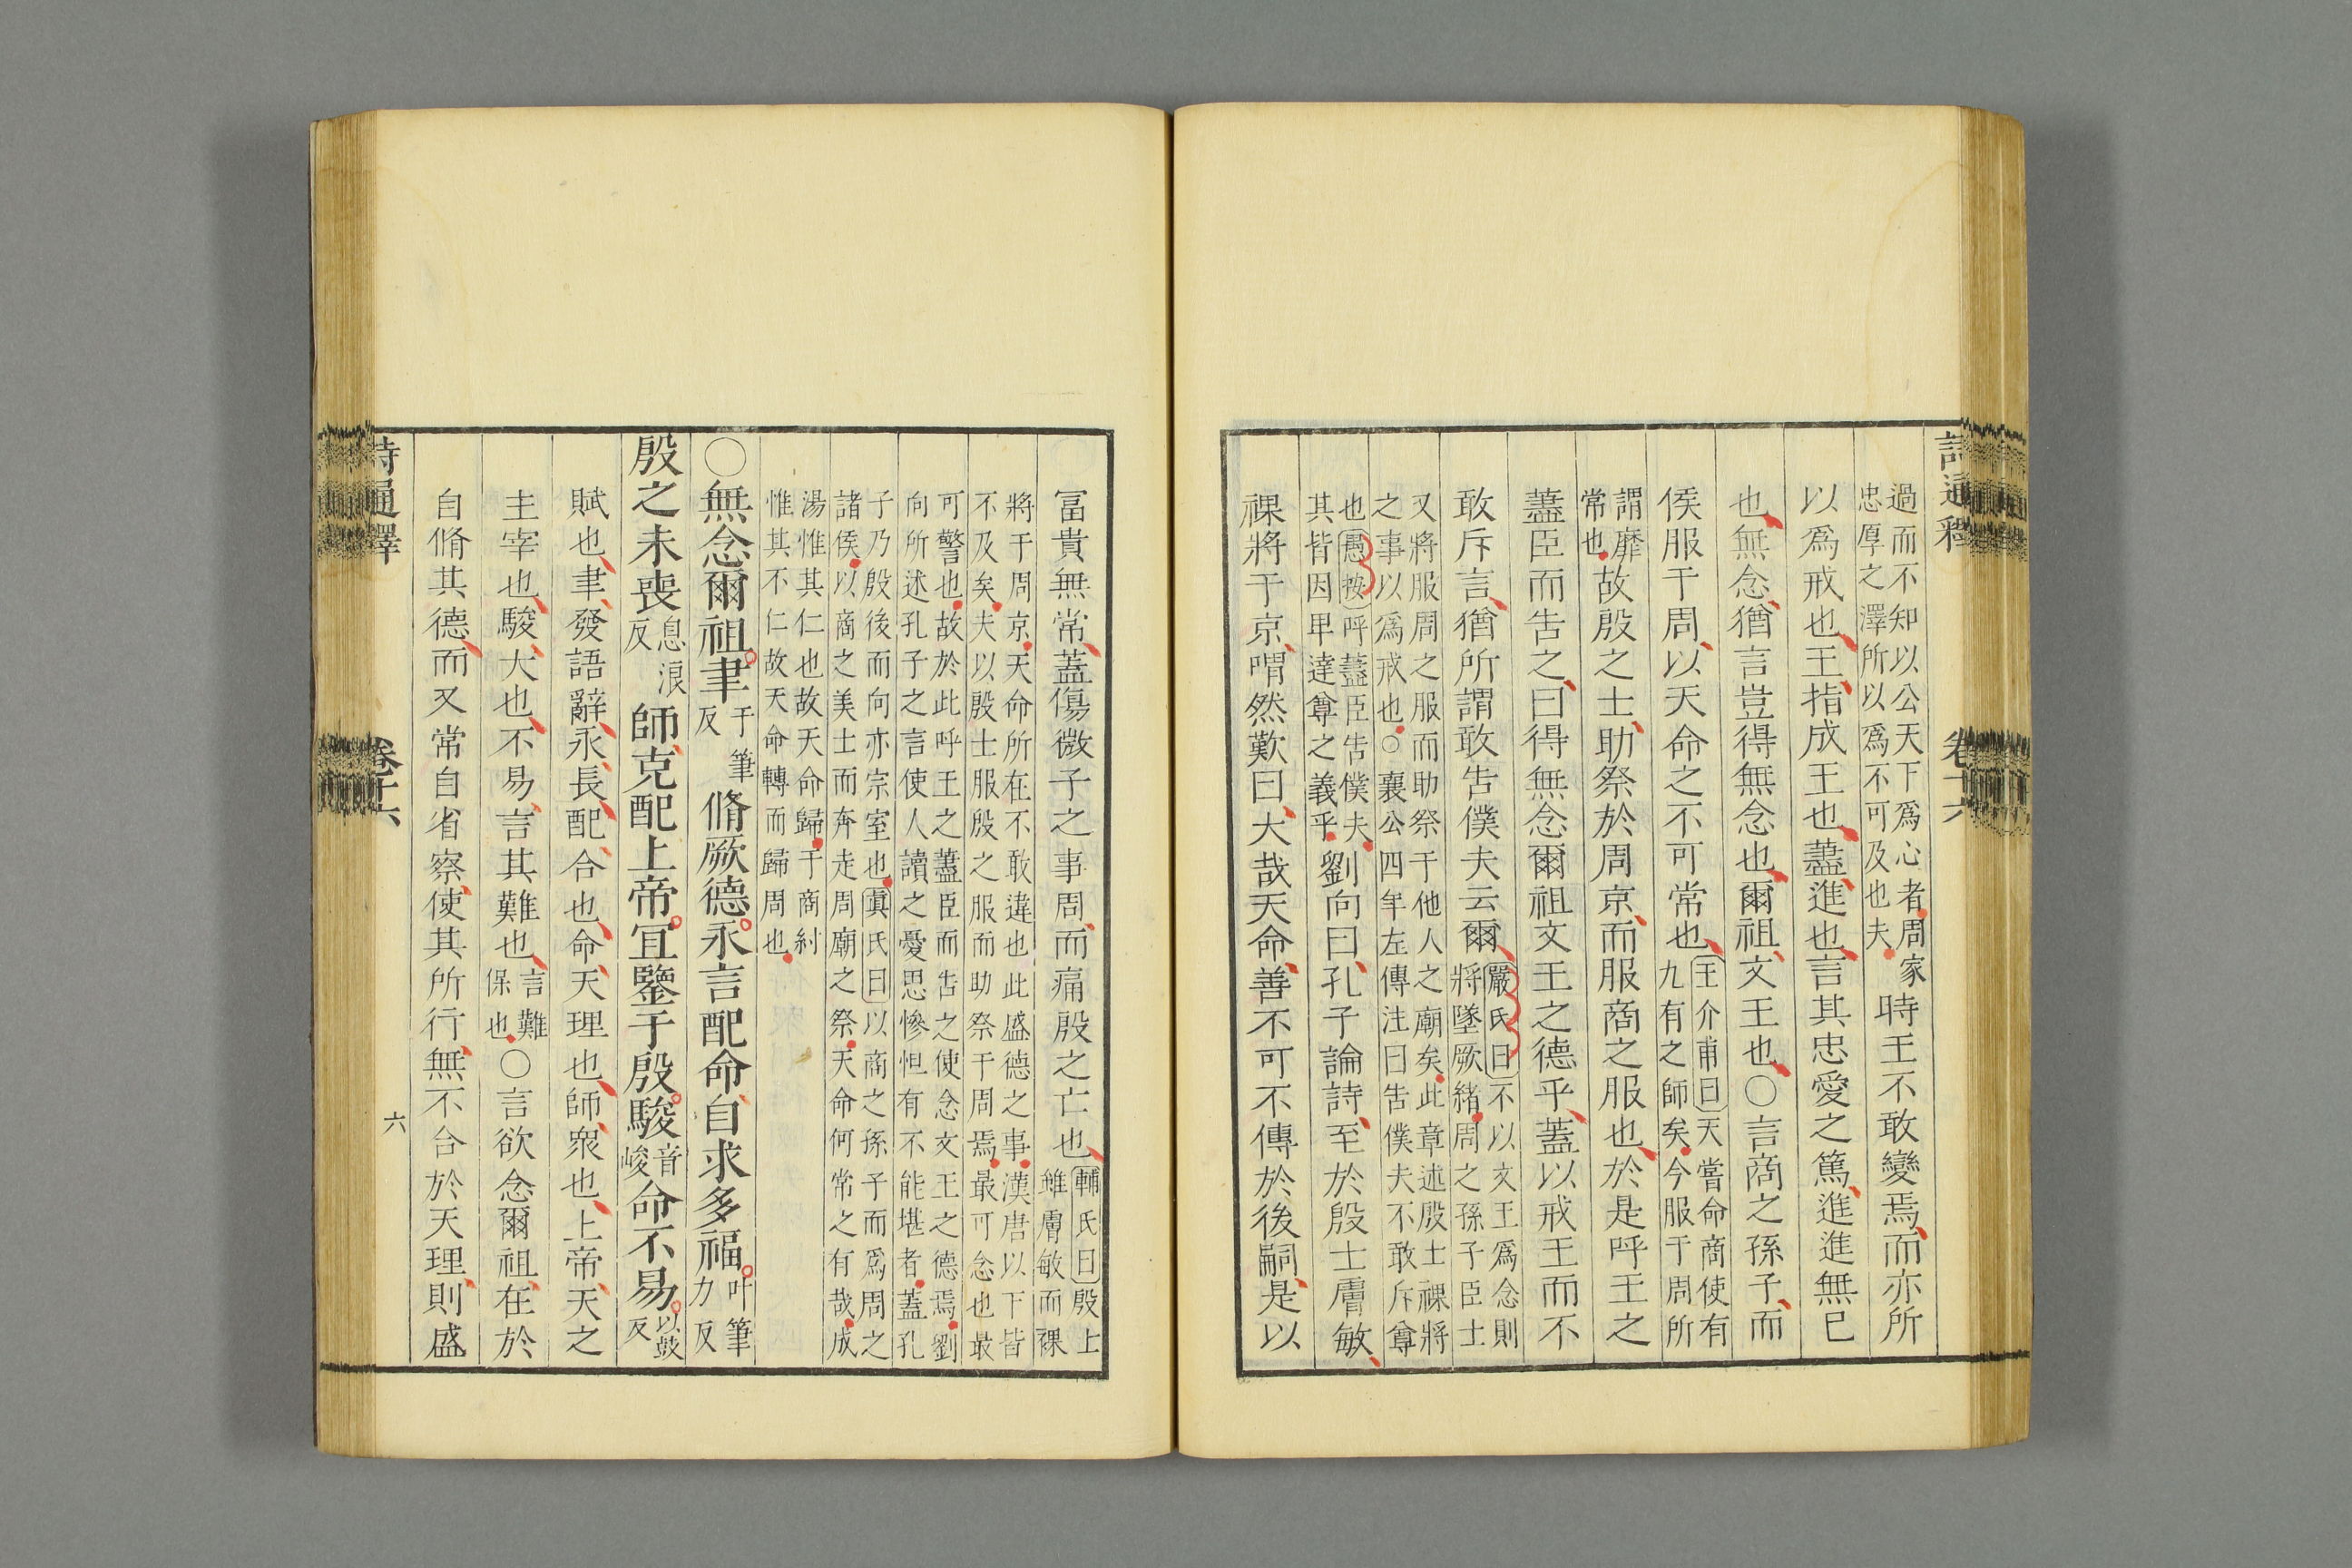 詩通釋 卷十六
過而不知以公天下爲心者周家
忠厚之澤所以爲不可及也夫
時王不敢變焉而亦所
以爲戒也王指成王也藎進也言其忠愛之篤進進無已
也無念猶言豈得無念也爾祖文王也○言商之孫子而
侯服于周以天命之不可常也
王介甫曰天嘗命商使有
九有之師矣今服于周所
謂靡
常也
故殷之士助祭於周京而服商之服也於是呼王之
藎臣而告之曰得無念爾祖文王之德乎蓋以戒王而不
敢斥言猶所謂敢告僕夫云爾
嚴氏曰不以文王爲念則
將墜厥緒周之孫子臣士
又將服周之服而助祭于他人之廟矣此章述殷士祼將
之事以爲戒也○襄公四年左傳注曰告僕夫不敢斥尊
也愚按呼藎臣告僕夫
其皆因甲達尊之義乎
劉向曰孔子論詩至於殷士膚敏
祼將于京喟然歎曰大哉天命善不可不傳於後嗣是以
冨貴無常蓋傷微子之事周而痛殷之亡也
輔氏曰殷上
雖膚敏而祼
將于周京天命所在不敢違也此盛德之事漢唐以下皆
不及矣夫以殷士服殷之服而助祭于周焉最可念也最
可警也故於此呼王之藎臣而告之使念文王之德焉劉
向所述孔子之言使人讀之憂思慘怛有不能堪者蓋孔
子乃殷後而向亦宗室也眞氏曰以商之孫子而爲周之
諸侯以商之美士而奔走周廟之祭天命何常之有哉成
湯惟其仁也故天命歸于商紂
惟其不仁故天命轉而歸周也
○無念爾祖聿
于筆
反
脩厥德永言配命自求多福
叶筆
力反
殷之未喪
息浪
反
師克配上帝冝鑒于殷駿
音
峻
命不易
以豉
反
賦也聿發語辭永長配合也命天理也師衆也上帝天之
主宰也駿大也不易言其難也
言難
保也
○言欲念爾祖在於
自脩其德而又常自省察使其所行無不合於天理則盛
詩通釋 卷十六 六